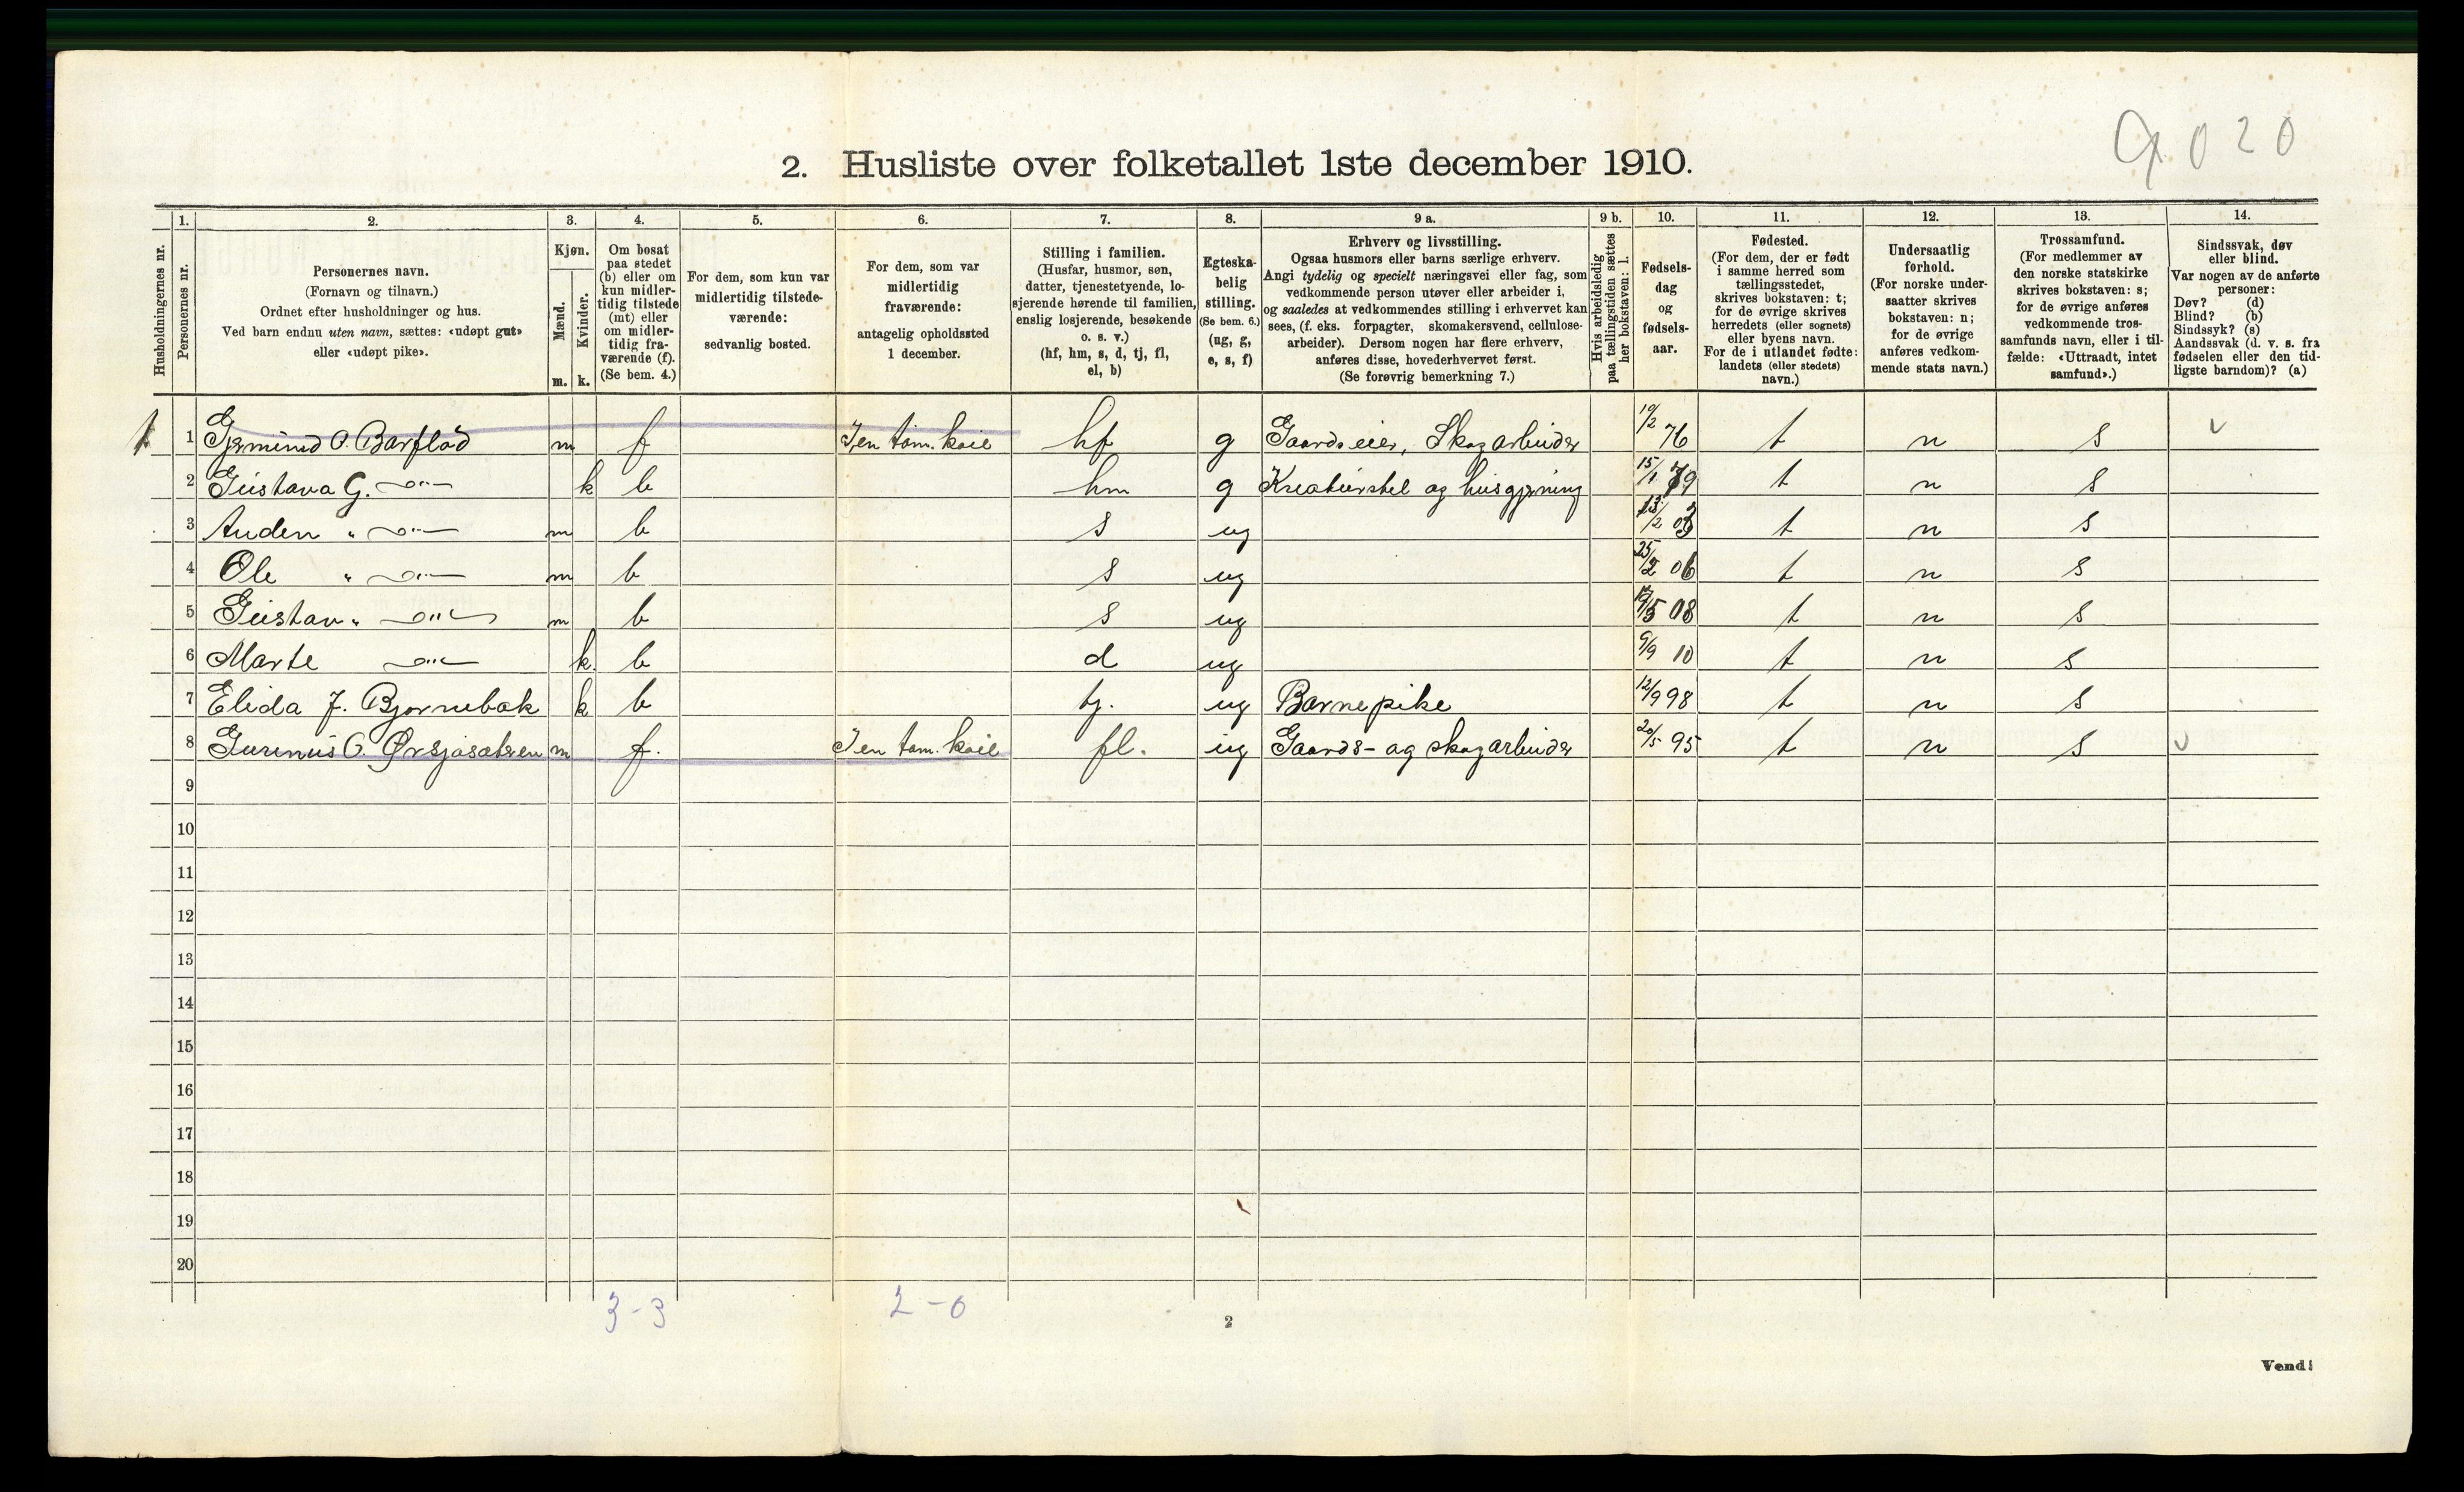 9020
2. Husliste over folketallet 1ste december 1910.
Husholdningernes nr.
1. Personernes nr.
2. Personernes navn.
(Fornavn og tilnavn.)
Ordnet efter husholdninger og hus.
Ved barn endnu uten navn, sættes: «udøpt gut»
eller «udøpt pike».
3. Kjøn.
Mænd. m.
Kvinder. k.
4. Om bosat
paa stedet
(b) eller om
kun midler-
tidig tilstede
(mt) eller
om midler-
tidig fra-
værende (f).
(Se bem. 4.)
5. For dem, som kun var
midlertidig tilstede-
værende:
sedvanlig bosted.
6. For dem, som var
midlertidig
fraværende:
antagelig opholdssted
1 december.
7. Stilling i familien.
(Husfar, husmor, søn,
datter, tjenestetyende, lo-
sjerende hørende til familien,
enslig losjerende, besøkende
o. s. v.)
(hf, hm, s, d, tj, fl,
el, b)
8. Egteska-
belig
stilling.
(Se bem. 6.)
(ug, g,
e, s, f)
9 a. Erhverv og livsstilling.
Ogsaa husmors eller barns særlige erhverv.
Angi tydelig og specielt næringsvei eller fag, som
vedkommende person utøver eller arbeider i,
og saaledes at vedkommendes stilling i erhvervet kan
sees, (f. eks. forpagter, skomakersvend, cellulose-
arbeider). Dersom nogen har flere erhverv,
anføres disse, hovederhvervet først.
(Se forøvrig bemerkning 7.)
9 b. Hvis arbeidsledig
paa tællingstiden sættes
her bokstaven: l.
10. Fødsels-
dag
og
fødsels-
aar.
11. Fødested.
(For dem, der er født
i samme herred som
tællingsstedet,
skrives bokstaven: t;
for de øvrige skrives
herredets (eller sognets)
eller byens navn.
For de i utlandet fødte:
landets (eller stedets)
navn.)
12. Undersaatlig
forhold.
(For norske under-
saatter skrives
bokstaven: n;
for de øvrige
anføres vedkom-
mende stats navn.)
13. Trossamfund.
(For medlemmer av
den norske statskirke
skrives bokstaven: s;
for de øvrige anføres
vedkommende tros-
samfunds navn, eller i til-
fælde: «Uttraadt, intet
samfund».)
14. Sindssvak, døv
eller blind.
Var nogen av de anførte
personer:
Døv? (d)
Blind? (b)
Sindssyk? (s)
Aandssvak (d. v. s. fra
fødselen eller den tid-
ligste barndom)? (a)
1 1 O. Barflod m f I en tøm. koie hf g Gaardseier, Skogarbeider 76 t n s
2 Gustava G. —"— k b hm g Kreaturstel og husgjerning 15/1 79 t n s
3 Auden " —"— m b s ug 03 t n s
4 Ole " —"— m b s ug 06 t n s
5 Gustav " —"— m b s ug 08 t n s
6 Marte —"— k. b d ug 9/9 10 t n s
7 Elida J. Bjørnebak k b tj. ug Barnepike 12/9 98 t n s
8 Gunnus O. m f. I en tøm. koie fl. ug Gaards- og skogarbeider 20/5 95 t n s
9
10
11
12
13
14
15
16
17
18
19
20
3-3 2-0
2
Vend!